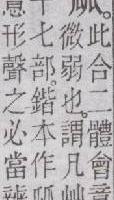 此合二體會意
微弱也。謂凡艸
十七部。鍇本作
意形聲之必當辨